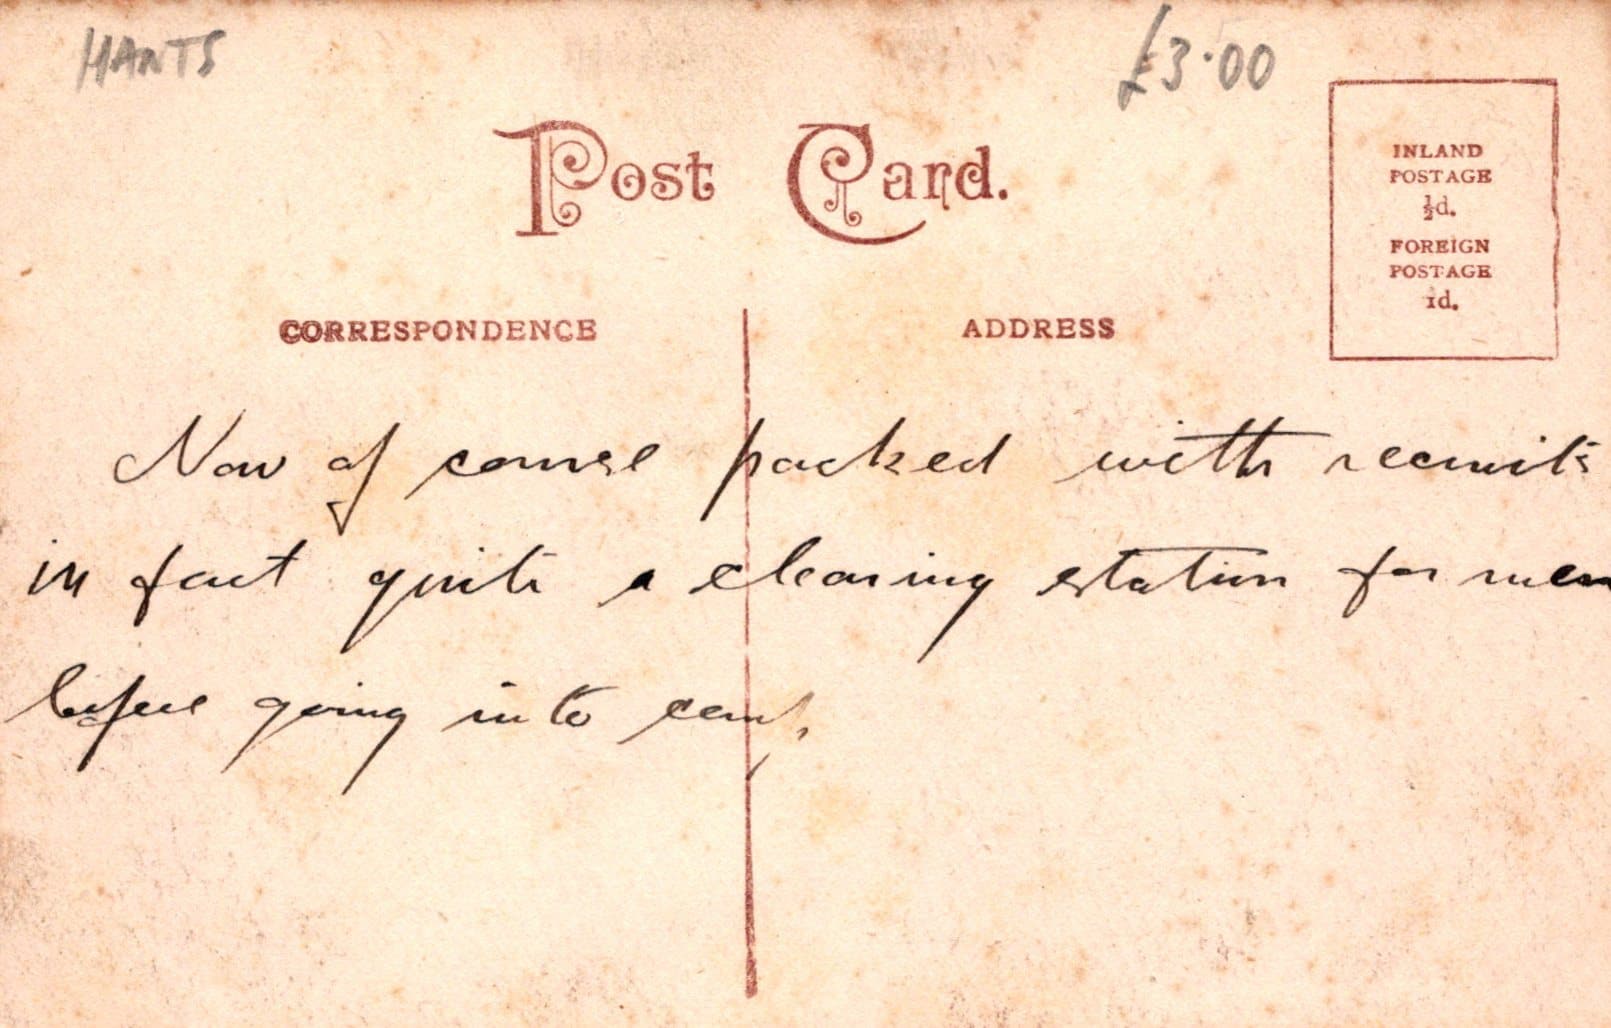 HANTS
£3.00
Post Card.
INLAND
POSTAGE
½d.
FOREIGN
POSTAGE
1d.
CORRESPONDENCE
ADDRESS
Now of course packed with recruits
in fact quite a clearing station for men
before going into camp.